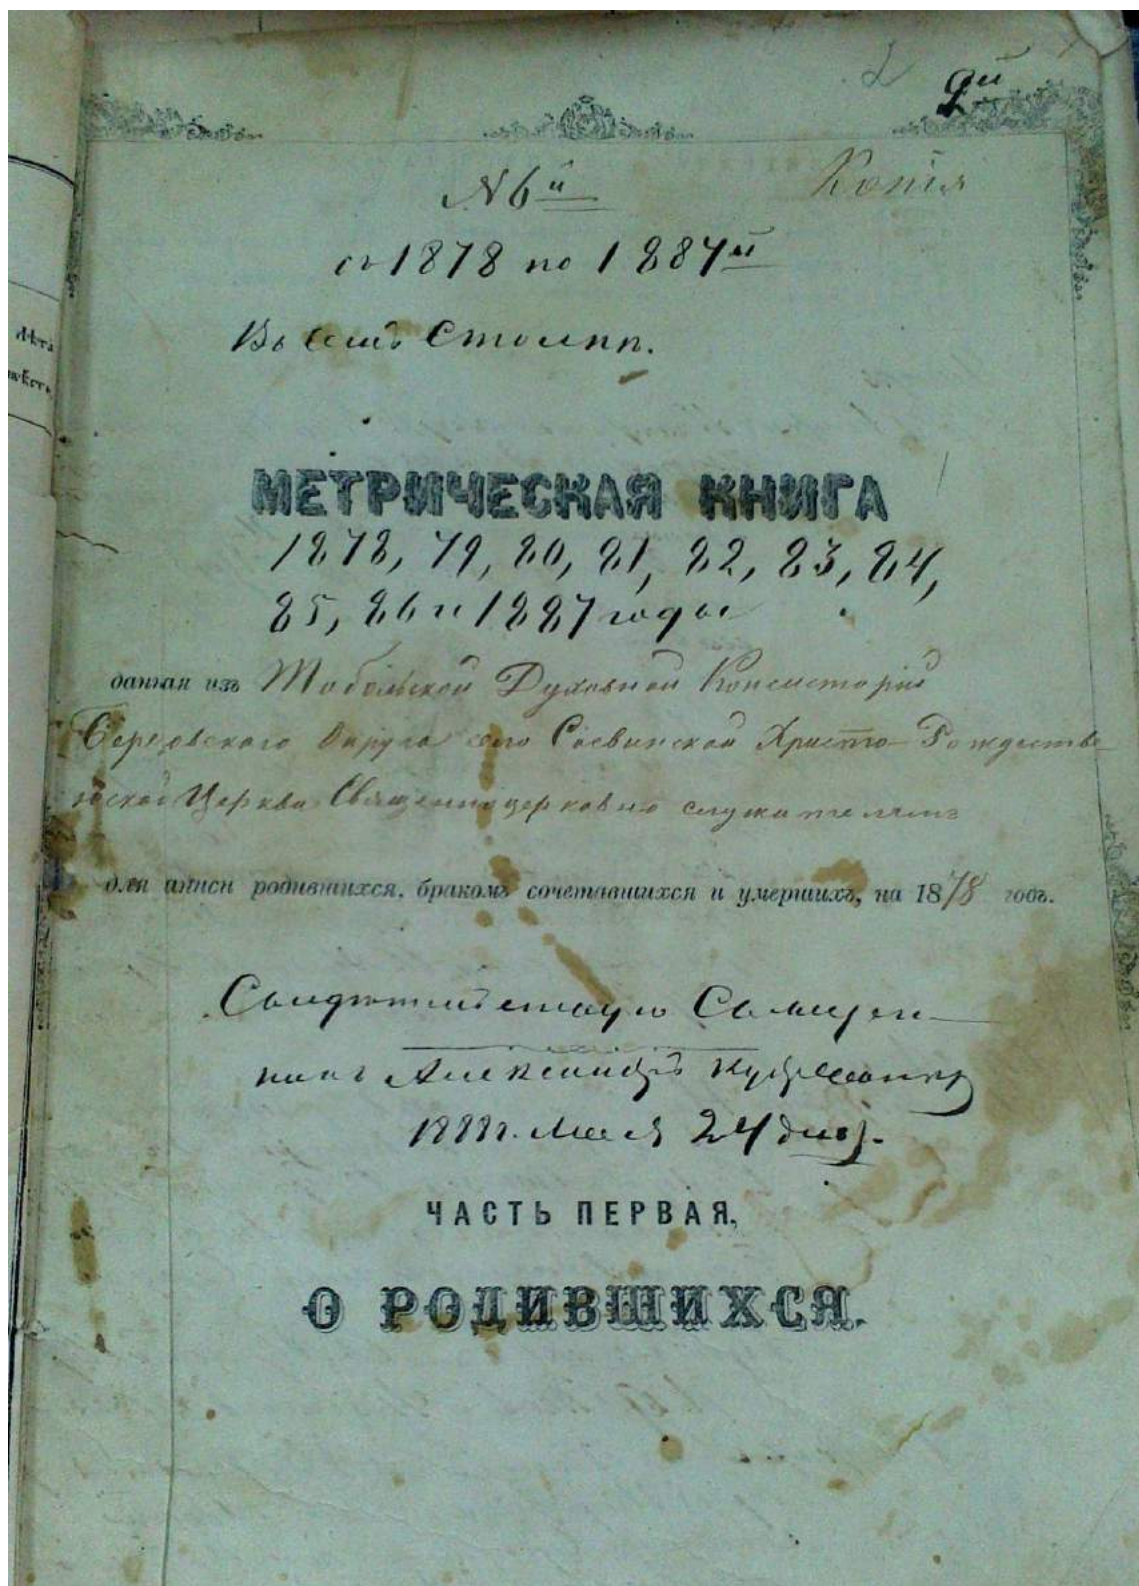 2й
№ 6й
Копія
съ 1878 по 1887й
МЕТРИЧЕСКАЯ КНИГА
1878, 79, 80, 81, 82, 83, 84,
85, 86 и 1887 годы
данная изъ Тобольской Духовной Консисторіи
Березовскаго Округа Сосвинской Христо-Рождестве-
нской Церкви Священноцерковно служителямъ
для записи родившихся, бракомъ сочетавшихся и умершихъ, на 1878 годъ.
Священ-
никъ Александръ
1888г. Мая 24 дня.
ЧАСТЬ ПЕРВАЯ,
О РОДИВШИХСЯ.